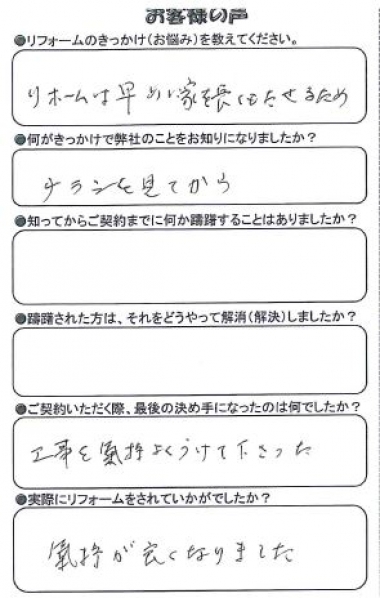 お客様の声
●リフォームのきっかけ(お悩み)を教えてください。
リホームは早めに家を長くもたせるため
●何がきっかけで弊社のことをお知りになりましたか?
チラシを見てから
●知ってからご契約までに何か躊躇することはありましたか?
●躊躇された方は、それをどうやって解消(解決)しましたか?
●ご契約いただく際、最後の決め手になったのは何でしたか?
工事を氣持よくうけて下さった
●実際にリフォームをされていかがでしたか?
氣持が良くなりました